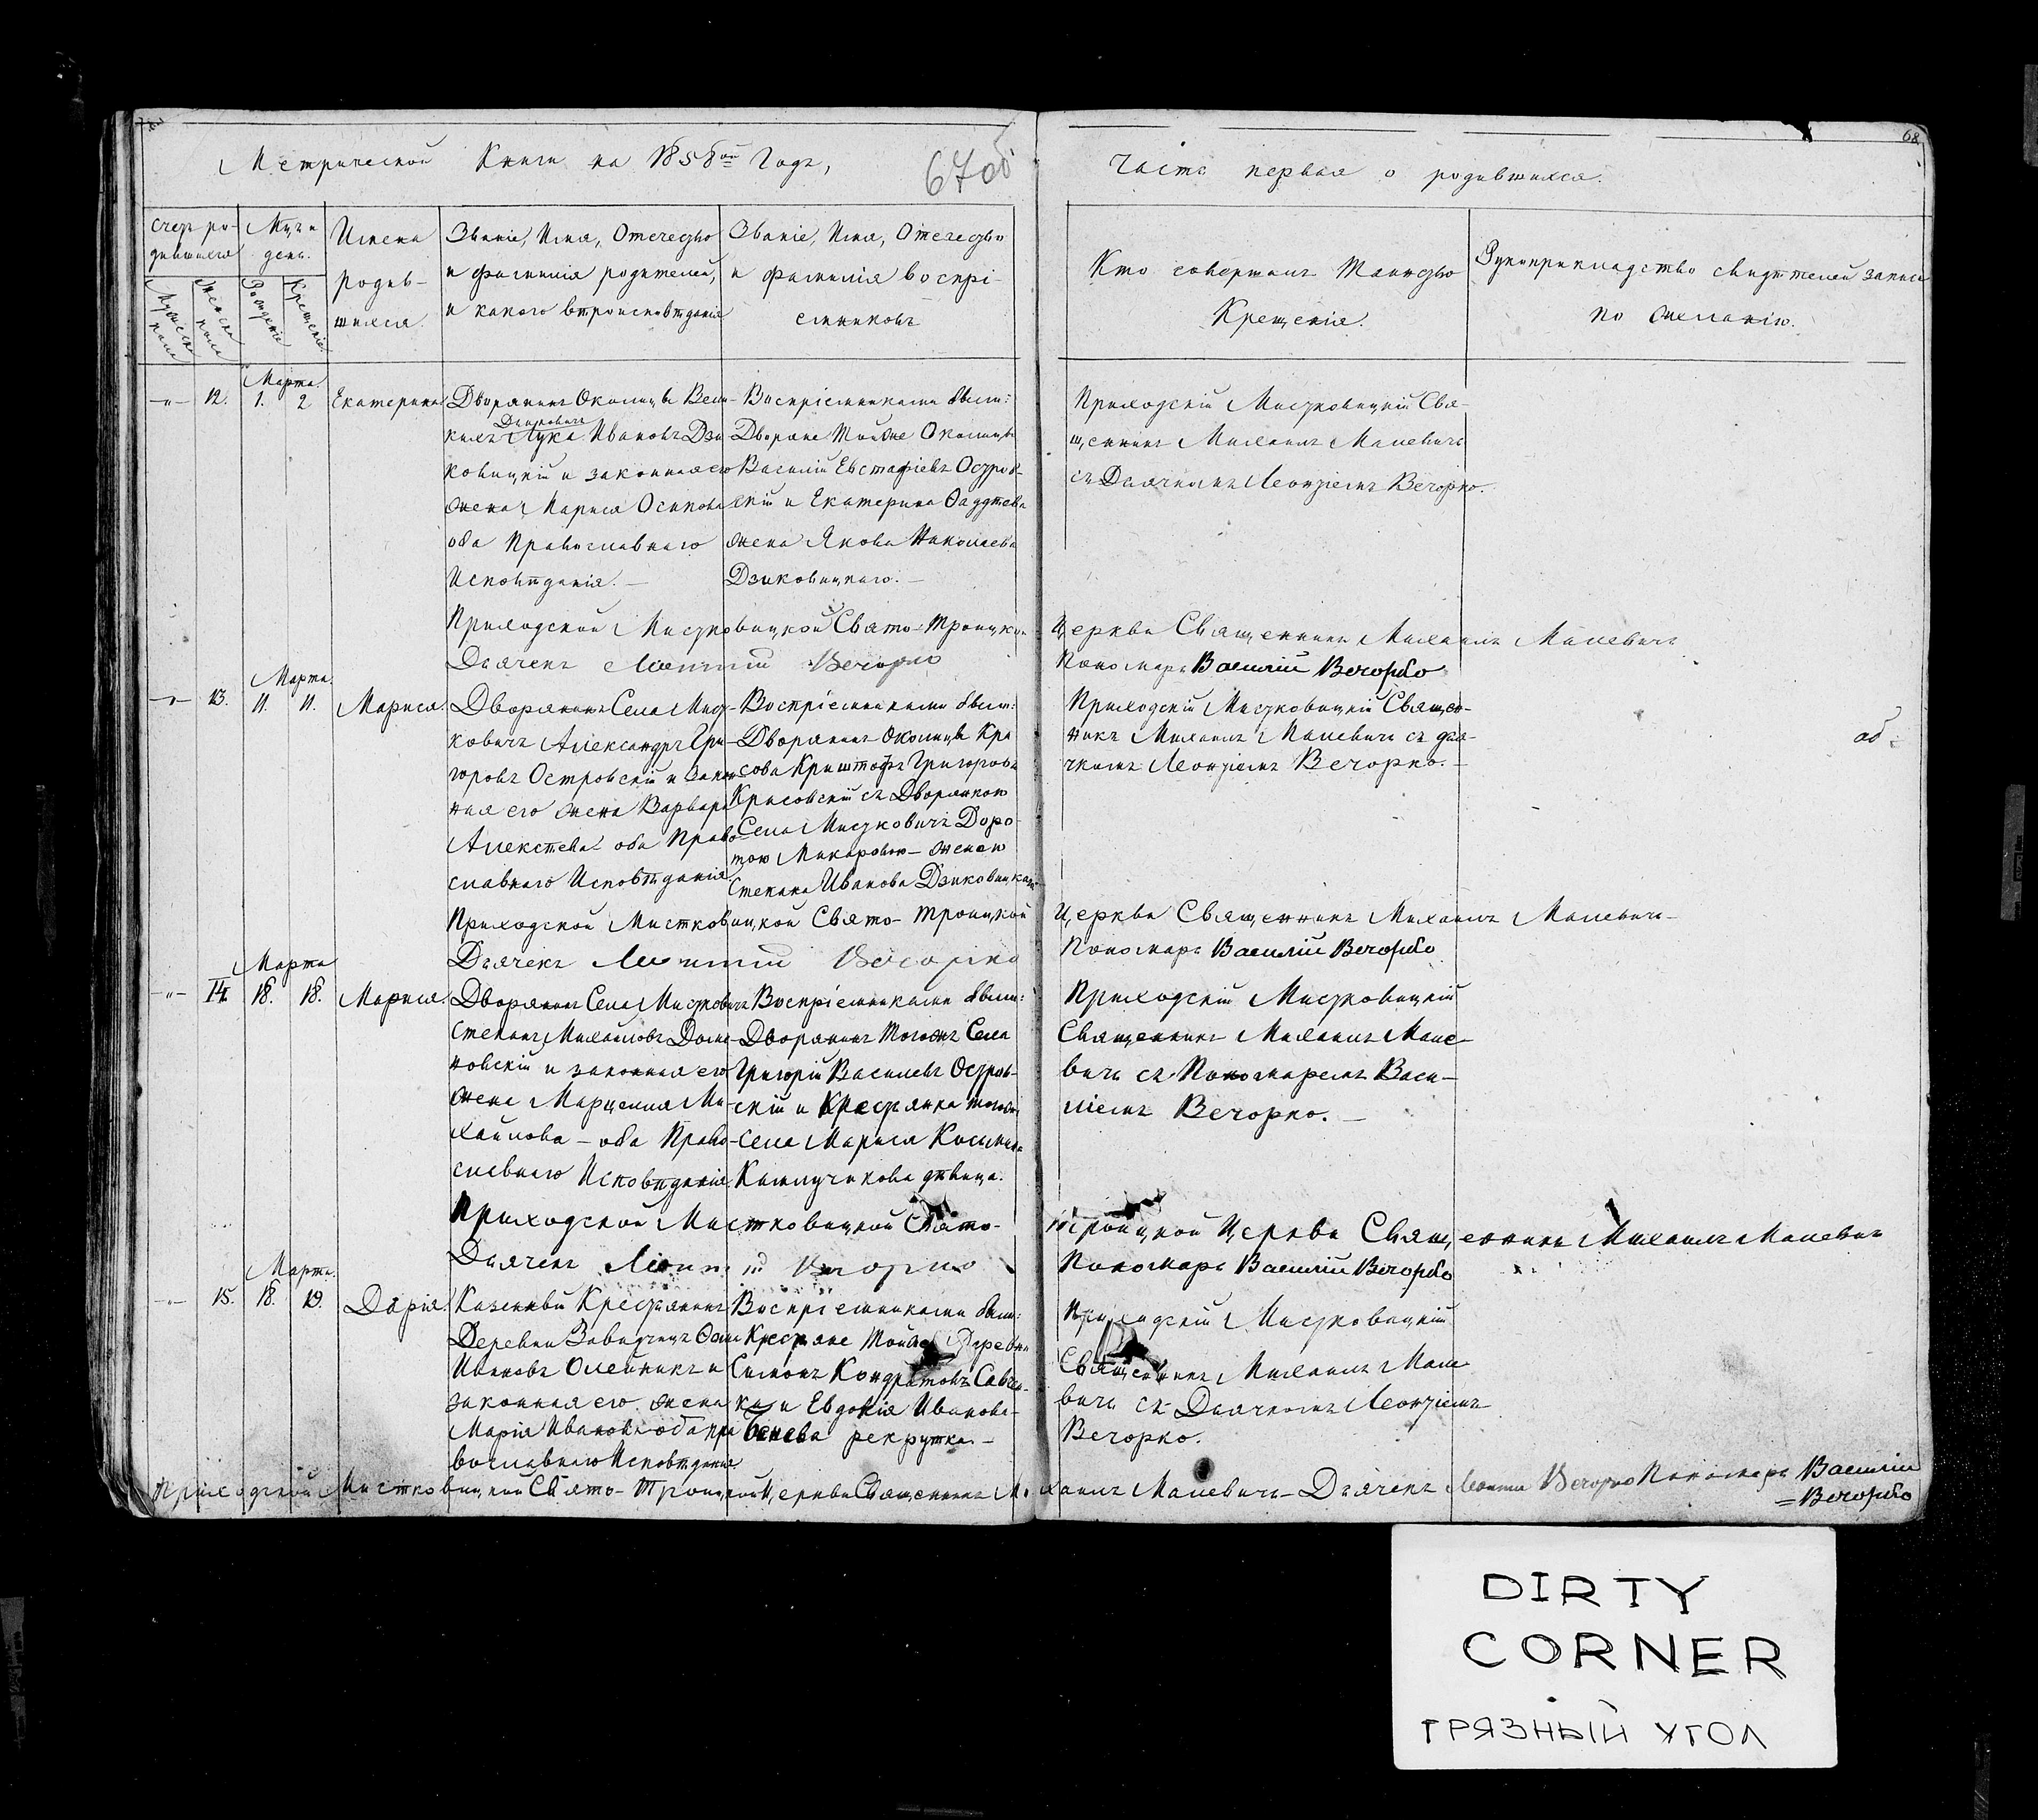 Метрической Книги на 1858ой Годъ,
67об
Часть первая о родившихся.
68
Счетъ ро-
дившихся
Мужеска
пола
Женска
пола
Мцъ и
день.
Рожденіе
Крещеніе
Имена
родив-
шихся
Званіе, Имя, Отечество
и фамилія родителей,
и какого вѣроисповѣданія
Званіе, Имя, Отечество
и фамилія воспрі-
емниковъ
Кто совершалъ Таинство
Крещенія.
Рукоприкладство свидѣтелей записи
по желанію.
Марта
12. 1. 2 Екатерина
Дворянинъ Околицы Вели-
Лука Ивановъ Дзи-
ковицкій и законная его
жена Марья Осипова
оба Православнаго
Исповѣданія. —
Воспріемниками были:
Дворяне Тойже Околицы
Василій Евстафіевъ Остров-
скій и Екатерина Фаддѣева
жена Якова Николаева
Дзиковицкаго. —
Приходскій Мистковицкій Свя-
щенникъ Михаилъ Малевичъ
съ Дьячкомъ Леонтіемъ Вечорко.
Приходской Мистковицкой Свято-Троицкой Церкви Священникъ Михаилъ Малевичъ
Дьячекъ Леонтій Вечорко Пономарь Василій Вечорко
Марта
13. 11. 11. Марья.
Дворянинъ Села Мист-
ковичъ Александръ Гри-
горовъ Островскій и закон-
ная его жена Варвара
Алексѣева оба Право-
славнаго Исповѣданія.
Воспріемниками были:
Дворянинъ Околицы Кра
сова Криштофъ Григоровъ
Красовскій съ Дворянкою
Села Мистковичъ Доро-
тою Макаровою — женою
Степана Иванова Дзиковицкаго
Приходскій Мистковицкій Священ-
никъ Михаилъ Малевичъ съ дья-
чкомъ Леонтіемъ Вечорко. —
об
Приходской Мистковицкой Свято-Троицкой Церкви Священникъ Михаилъ Малевичъ
Дьячекъ Леонтій Вечорко Пономарь Василій Вечорко
Марта
14. 18. 18. Марья.
Дворянинъ Села Мистковичъ
Степанъ Михаиловъ
и законная его
жена Марцелля Ми-
хайлова — оба Право-
славнаго Исповѣданія.
Воспріемниками были:
Дворянинъ Тогожъ Села
Григорій Васильевъ Остров-
скій и Крестьянка тогожъ
села Марья
дѣвица.
Приходскій Мистковицкій
Священникъ Михаилъ Мале-
вичъ съ Пономаремъ Васи-
ліемъ Вечорко. —
Приходской Мистковицкой Свято-Троицкой Церкви Священникъ Михаилъ Малевичъ
Дьячекъ Леонтій Вечорко Пономарь Василій Вечорко
Марта
15. 18. 19. Дарія.
Казенный Крестьянинъ
Деревни Завидчицъ
Ивановъ Олейникъ и
законная его жена
Марія Иванова оба пра
вославнаго Исповѣданія
Воспріемниками были:
Крестьяне Тойже Деревни
Симонъ Кондратовъ Савчу-
къ и Евдокія Иванова
рекрутка. —
Приходскій Мистковицкій
Священникъ Михаилъ Мале
вичъ съ Дьячкомъ Леонтіемъ
Вечорко.
Приходской Мистковицкой Свято-Троицкой Церкви Священникъ Михаилъ Малевичъ Дьячекъ Леонтій Вечорко Пономарь Василій
=Вечорко
DIRTY
CORNER
ГРЯЗНЫЙ УГОЛ